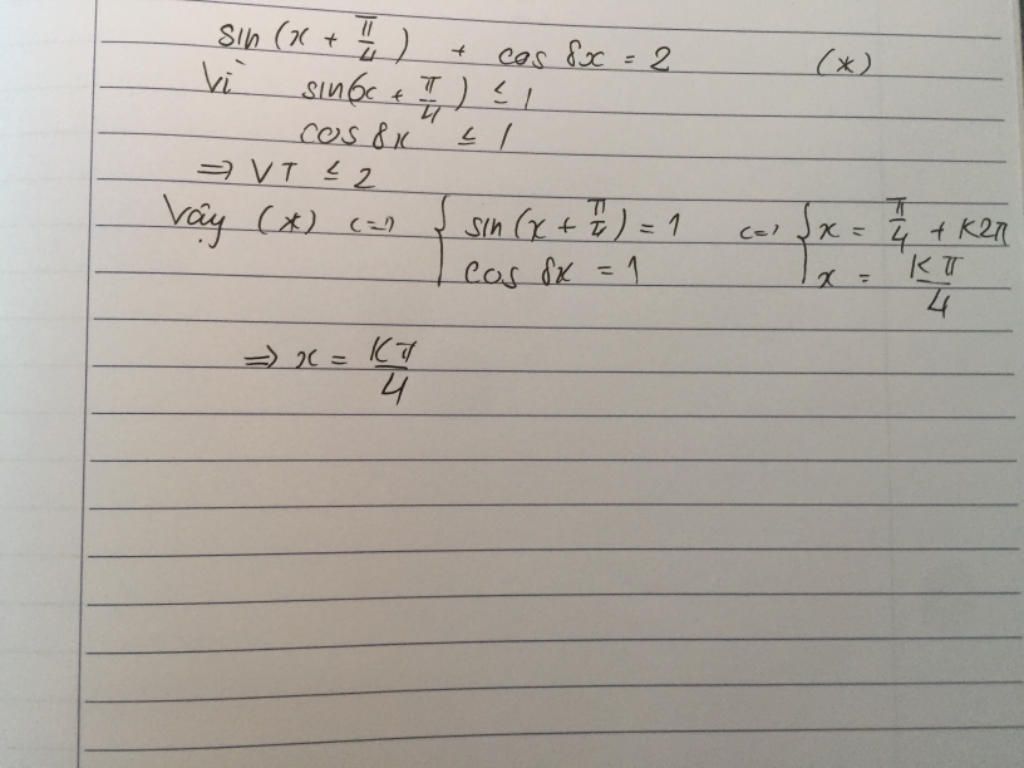 sin (x + π/4) + cos 8x = 2 (*)
Vì sin(x + π/4) ≤ 1
cos 8x ≤ 1
=> VT ≤ 2
Vậy (*) <=> { sin (x + π/4) = 1 <=> { x = π/4 + K2π
cos 8x = 1 x = Kπ/4
=> x = Kπ/4